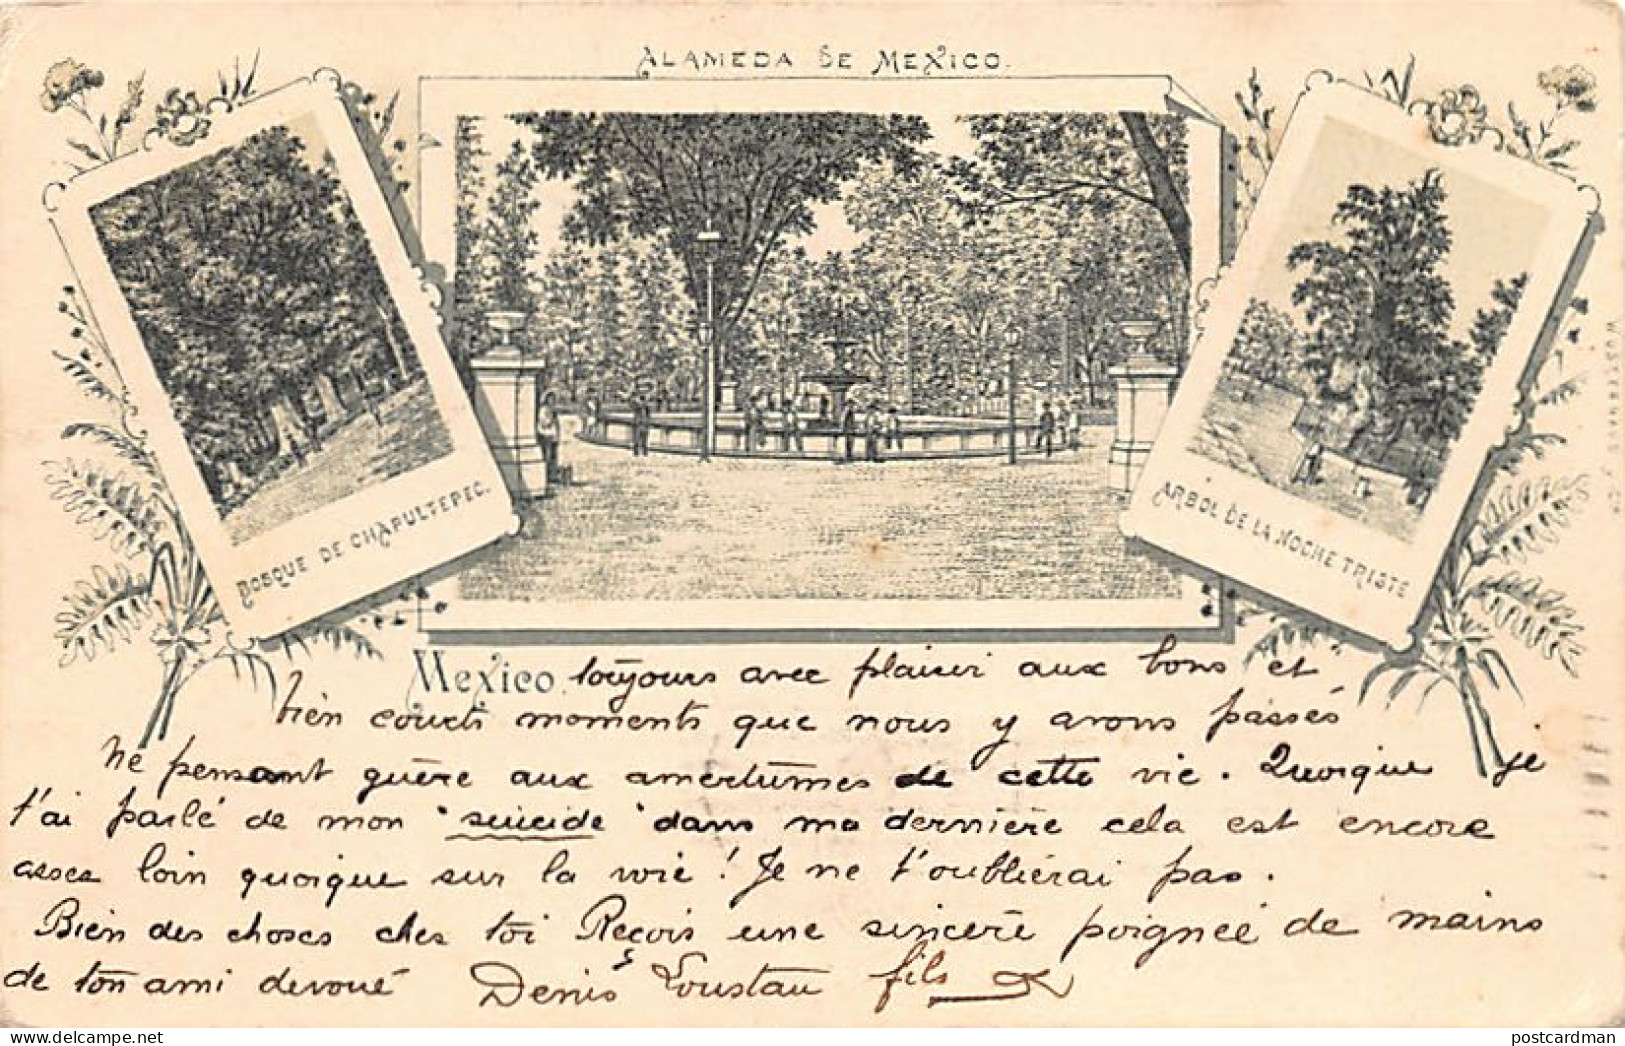 ALAMEDA DE MEXICO.
BOSQUE DE CHAPULTEPEC.
ARBOL DE LA NOCHE TRISTE
Mexico. toujours avec plaisir aux bons et
bien courts moments que nous y avons passés
Ne pensant guère aux amertumes de cette vie. Quoique je
t'ai parlé de mon "suicide" dans ma dernière cela est encore
assez loin quoique sur la voie! Je ne t'oublierai pas.
Bien des choses chez toi Reçois une sincère poignée de mains
de ton ami devoué Denis Loustau fils
postcardman